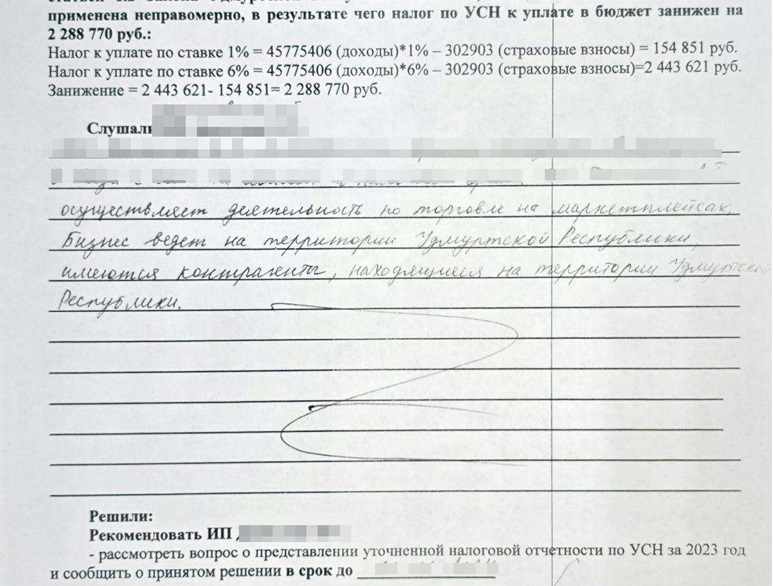 применена неправомерно, в результате чего налог по УСН к уплате в бюджет занижен на
2 288 770 руб.:
Налог к уплате по ставке 1% = 45775406 (доходы)*1% – 302903 (страховые взносы) = 154 851 руб.
Налог к уплате по ставке 6% = 45775406 (доходы)*6% – 302903 (страховые взносы)=2 443 621 руб.
Занижение = 2 443 621- 154 851= 2 288 770 руб.
Слушали
осуществляет деятельность по торговле на маркетплейсах.
Бизнес ведет на территории Удмуртской Республики,
имеются контрагенты, находящиеся на территории Удмуртской
Республики.
Решили:
Рекомендовать ИП
- рассмотреть вопрос о представлении уточненной налоговой отчетности по УСН за 2023 год
и сообщить о принятом решении в срок до